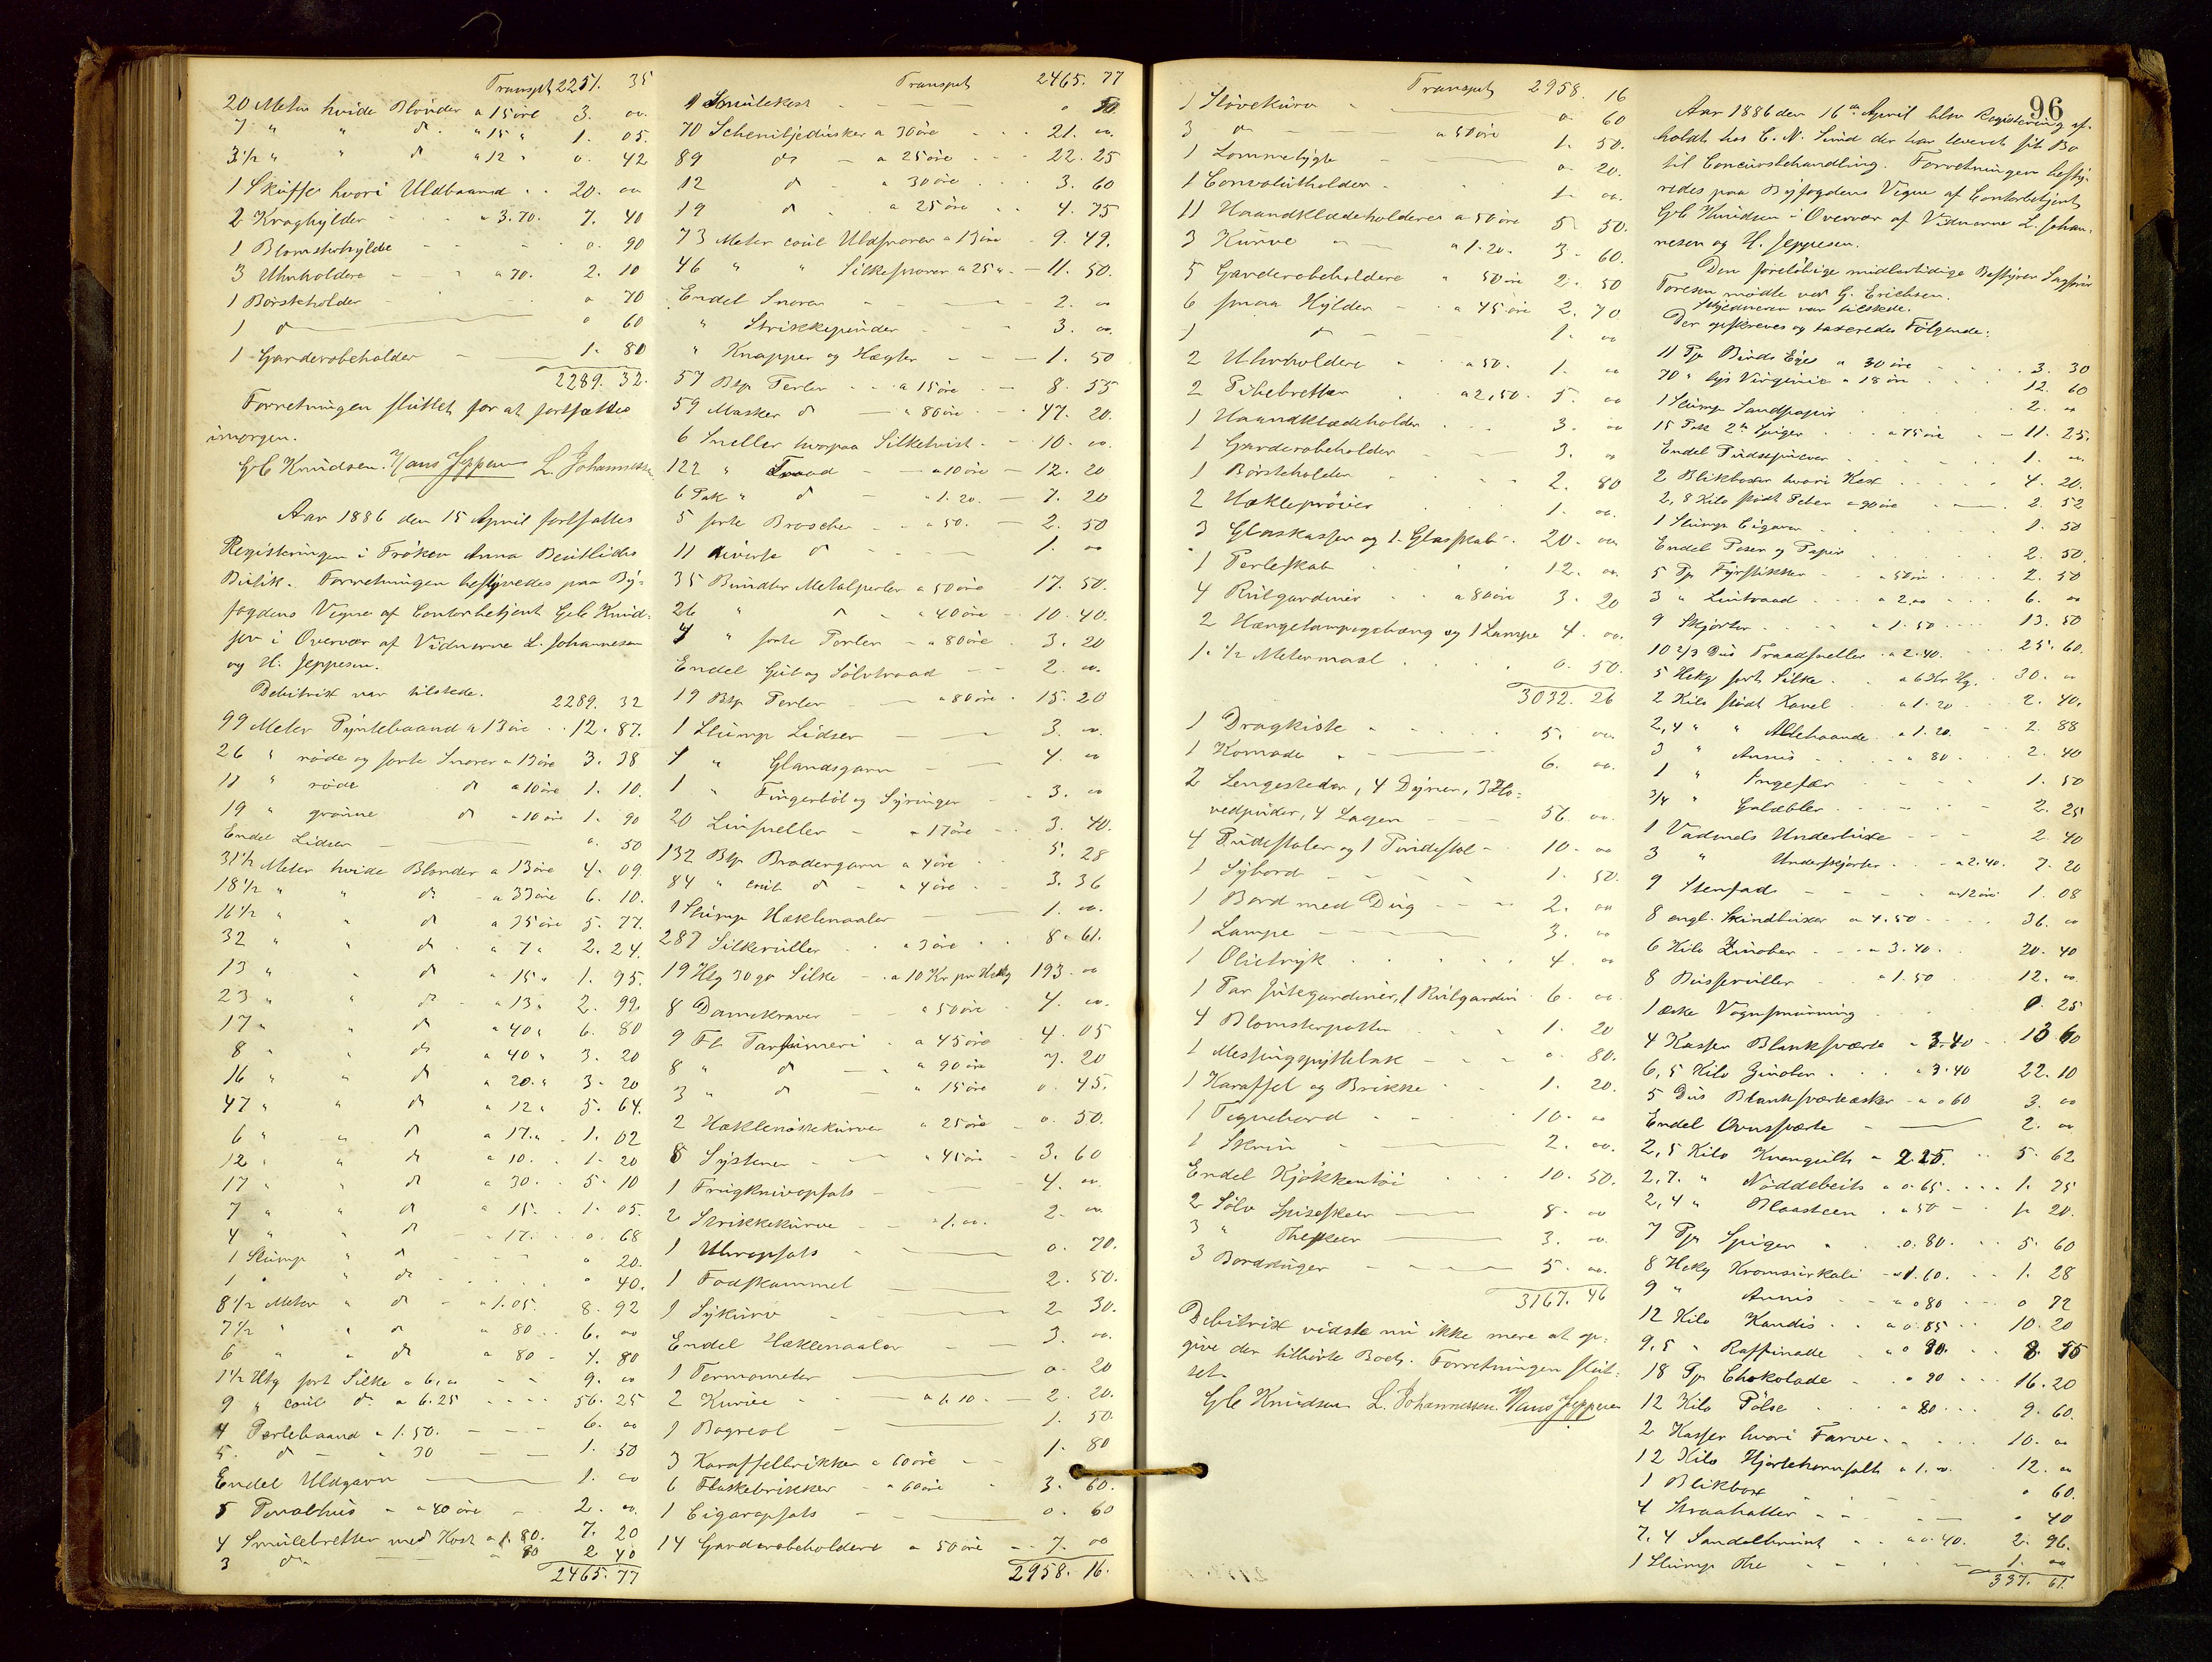 Transpt 2251. 35
20 Meter hvide Blonder a 15 öre 3. oo.
7 " " do " 15 " 1. 05.
3 1/2 " " do a 12 " 0. 42
1 Skuffe hvori Uldbaand 20. oo
2 Kraghylder a 3.70. 7. 40
1 Blomsterhylde 0. 90
3 Uhrholdere a 70. 2. 10
1 Börsteholder o 70
1 do o 60
1 Garderobeholder 1. 80
2289. 32.
Forretningen sluttet for at fortsættes
imorgen.
Gjb Knudsen. Hans Jeppesen L. Johannessen
Aar 1886 den 15 April fortsattes
Registeringen i Fröken Anna Bentlides
Butik. Forretningen bestyredes paa By-
fogdens Vegne af Contorbetjent Gjb Knud-
sen i Overvær af Vidnerne L. Johannesen
og H. Jeppesen.
Debitrix var tilstede. 2289. 32
99 Meter Pyntebaand a 13 öre 12. 87.
26 " röde og sorte Snorer a 13 öre 3. 38
11 " röde do a 10 öre 1. 10.
19 " grönne do a 10 öre 1. 90
Endel Lidser 0. 50
31 1/2 Meter hvide Blonder a 13 öre 4. 09.
18 1/2 " " do a 33 öre 6. 10.
16 1/2 " " do a 35 öre 5. 77.
32 " " do a 7 " 2. 24.
13 " " do a 15 " 1. 95.
23 " " do a 13 " 2. 99.
17 " " do a 40 " 6. 80
8 " " do a 40 " 3. 20
16 " " do a 20 " 3. 20
47 " " do a 12 " 5. 64.
6 " " do a 17 " 1. 02
12 " " do a 10. 1. 20
17 " " do a 30. 5. 10
7 " " do a 15. 1. 05.
4 " do a 17. 0. 68
1 Slump " do o 20.
1 " " do o 40.
8 1/2 Meter " do a 1.05. 8. 92
7 1/2 " " do a 80 6. oo
6 " " do a 80 4. 80
1 1/2 Hkg sort Silke a 6.oo 9. oo
9 " coul do a 6.25 56. 25
4 Perlebaand a 1.50. 6. oo
5 do a 30 1. 50
Endel Uldgarn 1. oo
5 Penalhus a 40 öre 2. oo.
4 Smulebretter med Kost a 1.80. 7. 20
3 do 80 2. 40
2465. 77
Transpt 2465. 77
1 Smulekost o 50
70 Scheniljedusker a 30 öre 21. oo.
89 do a 25 öre 22. 25
12 do a 30 öre 3. 60
19 do a 25 öre 4. 75
73 Meter coul Uldsnorer a 13 öre 9. 49.
46 " " Silkesnorer a 25 " 11. 50.
Endel Snorer 2. oo
" Strikkepinder 3. oo.
" Knapper og Hægter 1. 50
57 Btp Perler a 15 öre 8. 55
59 Masker do a 80 öre 47. 20.
6 Sneller hvorpaa Silketvist 10. oo.
122 " Traad a 10 öre 12. 20
6 Pak " do a 1.20. 7. 20
5 sorte Brocher a 50. 2. 50
11 diverse do 1. oo
35 Bundter Metalperler a 50 öre 17. 50.
26 " do a 40 öre 10. 40.
4 " sorte Perler a 80 öre 3. 20
Endel Gul og Sölvtraad 2. oo.
19 Btp Perler a 80 öre 15. 20
1 Slump Lidser 3. oo.
1 " Glandsgarn 4. oo
1 " Fingerböl og Syringer 3. oo
20 Linsneller a 17 öre 3. 40.
132 Btp Brodergarn a 4 öre 5. 28
84 " coul do a 4 öre 3. 36
1 Slump Hæklenaaler 1. oo.
287 Silkeruller a 3 öre 8. 61.
19 Hkg 30 gr Silke a 10 Kr pr Hekg 193. oo
8 Damekraver a 50 öre 4. oo.
9 Fl Parfumeri a 45 öre 4. 05
8 " do a 90 öre 7. 20
3 " do a 15 öre 0. 45.
2 Hæklenöstekurve a 25 öre 0. 50.
8 Systener a 45 öre 3. 60
1 Frugtknivopsats 4. oo.
2 Strikkekurve a 1.oo. 2. oo.
1 Uhropsats 0. 70.
1 Fodskammel 2. 50.
1 Sykurv 2 30.
Endel Hæklenaaler 3. oo.
1 Termometer 0. 20
2 Kurve a 1.10 2. 20.
1 Bogreol 1. 50
3 Karaffelbrikker a 60 öre 1. 80
6 Flaskebrikker a 60 öre 3. 60.
1 Cigaropsats 0. 60
14 Garderobeholdere a 50 öre 7. oo
2958. 16.
Transpt 2958. 16
1 Stövekurv o. 60
3 do a 50 öre 1. 50.
1 Lommelygte o. 20.
1 Convolutholder 1. oo.
11 Haandklædeholdere a 50 öre 5. 50.
3 Kurve a 1.20. 3. 60.
5 Garderobeholdere " 50 öre 2. 50
6 smaa Hylder a 45 öre 2. 70
1 do 1. oo
2 Uhrholdere a 50. 1. oo
2 Pibebretter a 2,50. 5. oo
1 Haandklædeholder 3. oo
1 Garderobeholder 3. oo
1 Börsteholder 2. 80
2 Hæklepröver 1. oo.
3 Glaskasser og 1 Glasskab 20. oo
1 Perleskab 12. oo.
4 Rulgardiner a 80 öre 3. 20
2 Hængelampeophæng og 1 Lampe 4. oo.
1. 1/2 Metermaal 0. 50.
3032. 26
1 Dragkiste 5. oo
1 Komode 6. oo.
2 Sengesteder, 4 Dyner, 3 Ho-
vedpuder, 4 Lagen 56. oo.
4 Pudestoler og 1 Pindestol 10. oo
1 Sybord 1. 50.
1 Bord med Dug 2. oo
1 Lampe 3. oo
1 Olietryk 4. oo
1 Par Jutegardiner, 1 Rulgardin 6. oo
4 Blomsterpotter 1. 20
1 Messingspyttebak o. 80.
1 Karaffel og Brikke 1. 20.
1 Tegnebord 10. oo
1 Skrin 2. oo.
Endel Kjökkentöi 10. 50.
2 Sölv Spiseskeer 8. oo
3 " Theskeer 3. oo.
3 Bordduger 5. oo.
3167. 46
Debitrix vidste nu ikke mere at op-
give der tilhörte Boet. Forretningen slut-
tet.
Gjb Knudsen L. Johannessen. Hans Jeppesen
96
Aar 1886 den 16de April blev Registering af-
holdt hos C. N. Lund der har leveret sit Bo
til Concursbehandling. Forretningen besty-
redes paa Byfogdens Vegne af Contorbetjent
Gjb Knudsen i Overvær af Vidnerne L. Johan-
nesen og H. Jeppesen.
Den forelöbige midlertidige Bestyrer Sagförer
Foresen mödte ved G. Erichsen.
Skyldneren var tilstede.
Der opskreves og taxeredes Fölgende:
11 Pjr Binds Eges a 30 öre 3. 30
70 " lys Virginie a 18 öre 12. 60
1 Slump Sandpapir 2. oo
15 Pak 2" Spiger a 75 öre 11. 25.
Endel Pudsepulver 1. oo.
2 Blikboxer hvori Kex 4. 20.
2,8 Kilo stödt Peber a 90 öre 2. 52
1 Slump Cigarer 1. 50
Endel Poser og Papir 2. 50.
5 Pjr Fyrstikker a 50 öre 2. 50
3 " Lintraad a 2,oo 6. oo
9 Skjorter a 1.50 13. 50
10 2/3 Dus Traadsneller a 2.40. 25. 60.
5 Hekg sort Silke a 6 Kr Hg. 30. oo
2 Kilo stödt Kanel a 1.20 2. 40.
2,4 " " Allehaande a 1.20. 2. 88
3 " Annis a 80 2. 40
1 " Ingefær 1. 50
3/4 " Galæbler 2. 25
1 Vadmels Underbuxe 2. 40
3 " Underskjorter a 2.40. 7. 20
9 Stenfade a 12 öre 1. 08
8 engl. Skindbuxer a 4.50 36. oo
6 Kilo Zinober a 3.40 20. 40
8 Busseruller a 1.50 12. oo.
1 æske Vognsmurning 0. 25
4 Kasser Blanksværte a 3.40 13 60
6,5 Kilo Zinober a 3.40 22. 10
5 Dus Blanksværtæsker a o 60 3. oo
Endel Ovnsværte 2. oo
2,5 Kilo Krongult a 2.25. 5. 62
2,7. " Nöddebeits a o.65. 1. 75
2,4 " Blaasteen a 50 1. 20.
7 Pjr Spiger .0.80. 5. 60
8 Hekg Kromsurkali a 1.60. 1. 28
9 " Annis a o 80 0 72
12 Kilo Kandis a o 85 10. 20
9,5 " Raffinade a o 90. 8. 55
18 Pjr Chokolade a 90 16. 20
12 Kilo Pölse a 80 9. 60.
2 Kasser hvori Farve 10. oo
12 Kilo Hjortehornsalt a 1.oo. 12. oo
1 Blikbox o 60.
4 Straahatter o 40
7,4 Sandelbrunt a o.40. 2. 96.
1 Slump The 1. oo
337. 61.